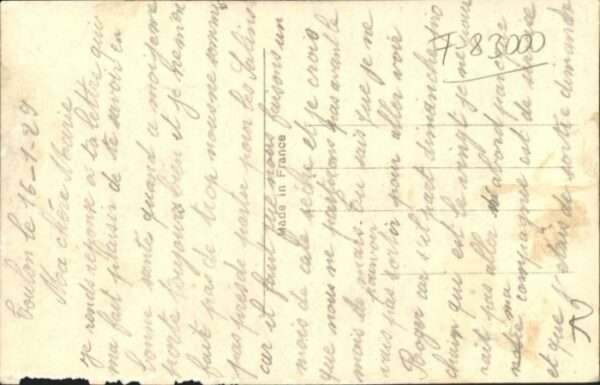 Toulon le 16-1-29
Ma chère Marie
Je rends réponse à ta lettre qui
ma fait plaisir de te savoir en
bonne santé quand a moi je me
porte toujours bien et je ne men
fait pas de trop nous ne sommes
pas près de partir pour les Salins
car il faut que nous faisons un
mois de cale sèche et je crois
que nous ne partirons pas avant le
mois de mars. tu sais que je ne
vais pas pouvoir sortir pour aller voir
Roger car s'il part dimanche pro
chain qui est le vingt je ne
rait pas aller abord parce
ma compagnie est de
et que de sortir dimanche
7-83000
Made in France